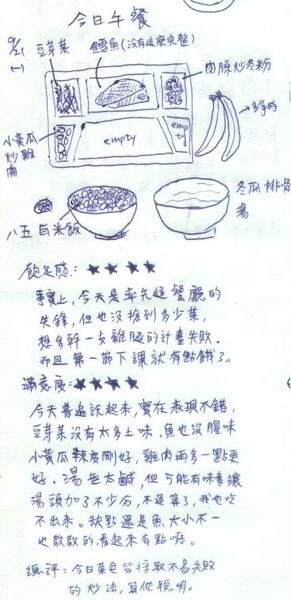 今日午餐
9/21
(一)
豆芽菜
鱈魚(沒有這麼完整)
肉臊炒冬粉
小黃瓜
炒雞
肉
empty
empty
多爭的
八五百米飯
冬瓜排骨
湯
飽足感：★★★★
事實上，今天是率先進餐廳的
先鋒，但也沒搶到多少菜，
想多幹一支雞腿的計畫失敗。
而且第一節下課就有點餓了。
滿意度：★★★★
今天普遍說起來，實在表現不錯，
豆芽菜沒有太多土味，魚也沒腥味
小黃瓜辣度剛好，雞肉兩多一點更
好，湯無太鹹，但可能有味精讓
湯頭加了不少分，不過算了，我也吃
不出來。缺點還是魚大小不一
也散散的看起來有點嘔。
總評：今日菜色皆採取不易失敗
的炒法，算他聰明。